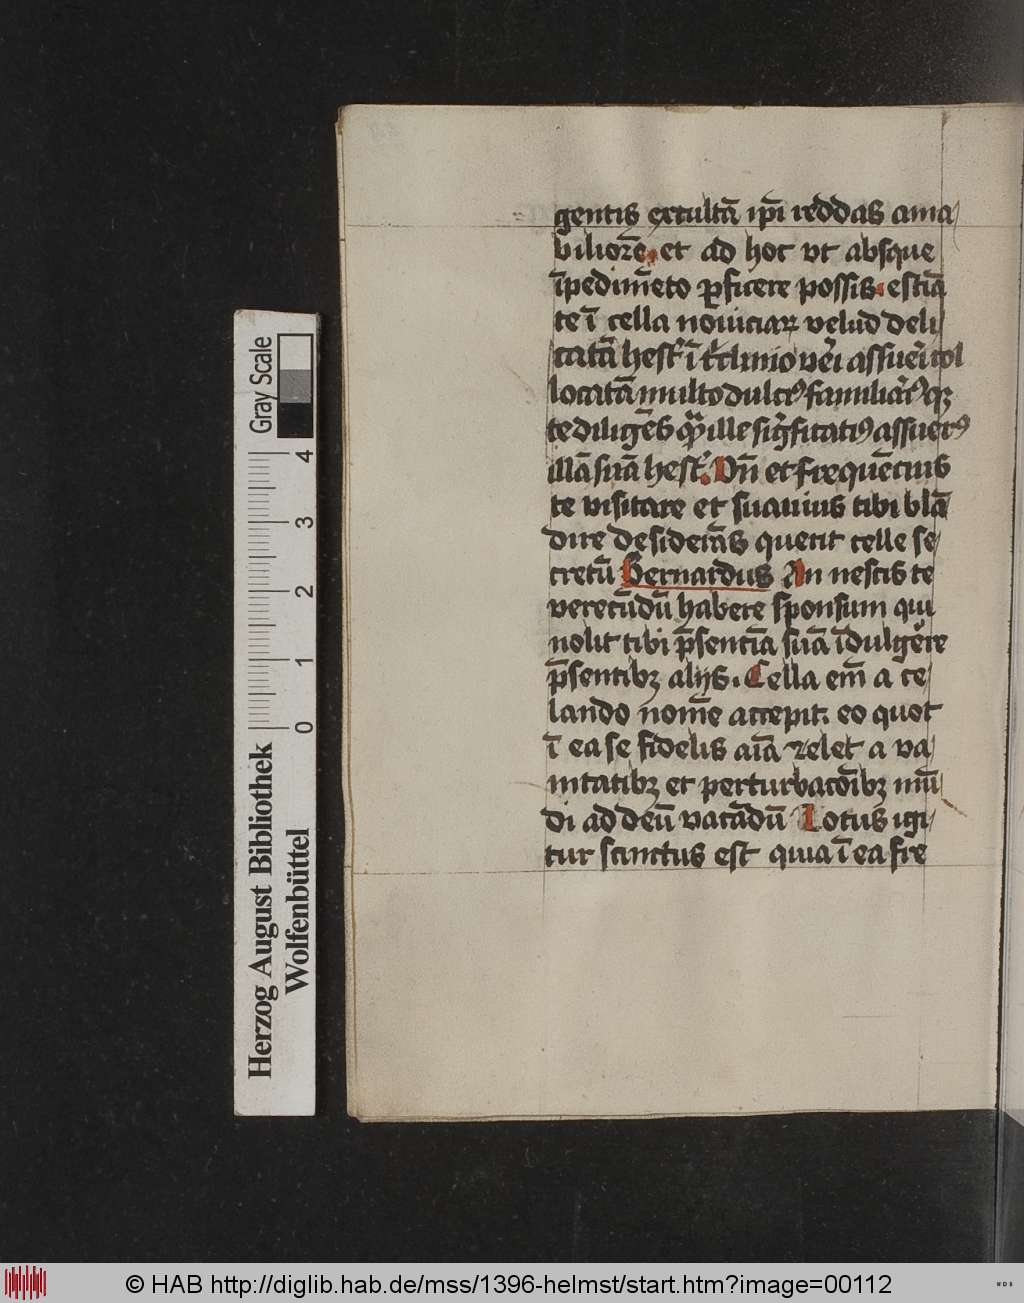 gentis excultā ip̄i reddas ama/
biliorē. et ad hoc vt absque
īpedimēto ꝑficere possis. ēstiā
te ī cella nouiciaꝝ velud deli/
catā hest' ī t'clinio v'ei assueri col
locatā multo dulciꝰ familiariꝰqꝫ
te diligēs ille siḡficatiuꝰ assuerꝰ
illā suā hest'. Vn̄ et frequēcius
te visitare et suauius tibi blā/
dire desiderās querit celle se/
cretū Bernardus An nescis te
verecūdū habere sponsum qui
nolit tibi p̄senciā suā īdulgere
p̄sentibꝫ alijs. Cella em̄ a ce/
lando nomē accepit. eo quot
ī ea se fidelis aīa zelet a va/
nitatibꝫ et perturbacōībꝫ mū/
di ad deū vacādū Locus igi/
tur sanctus est quia ī ea fre
Herzog August Bibliothek
Wolfenbüttel
Gray Scale
0 1 2 3 4
© HAB http://diglib.hab.de/mss/1396-helmst/start.htm?image=00112